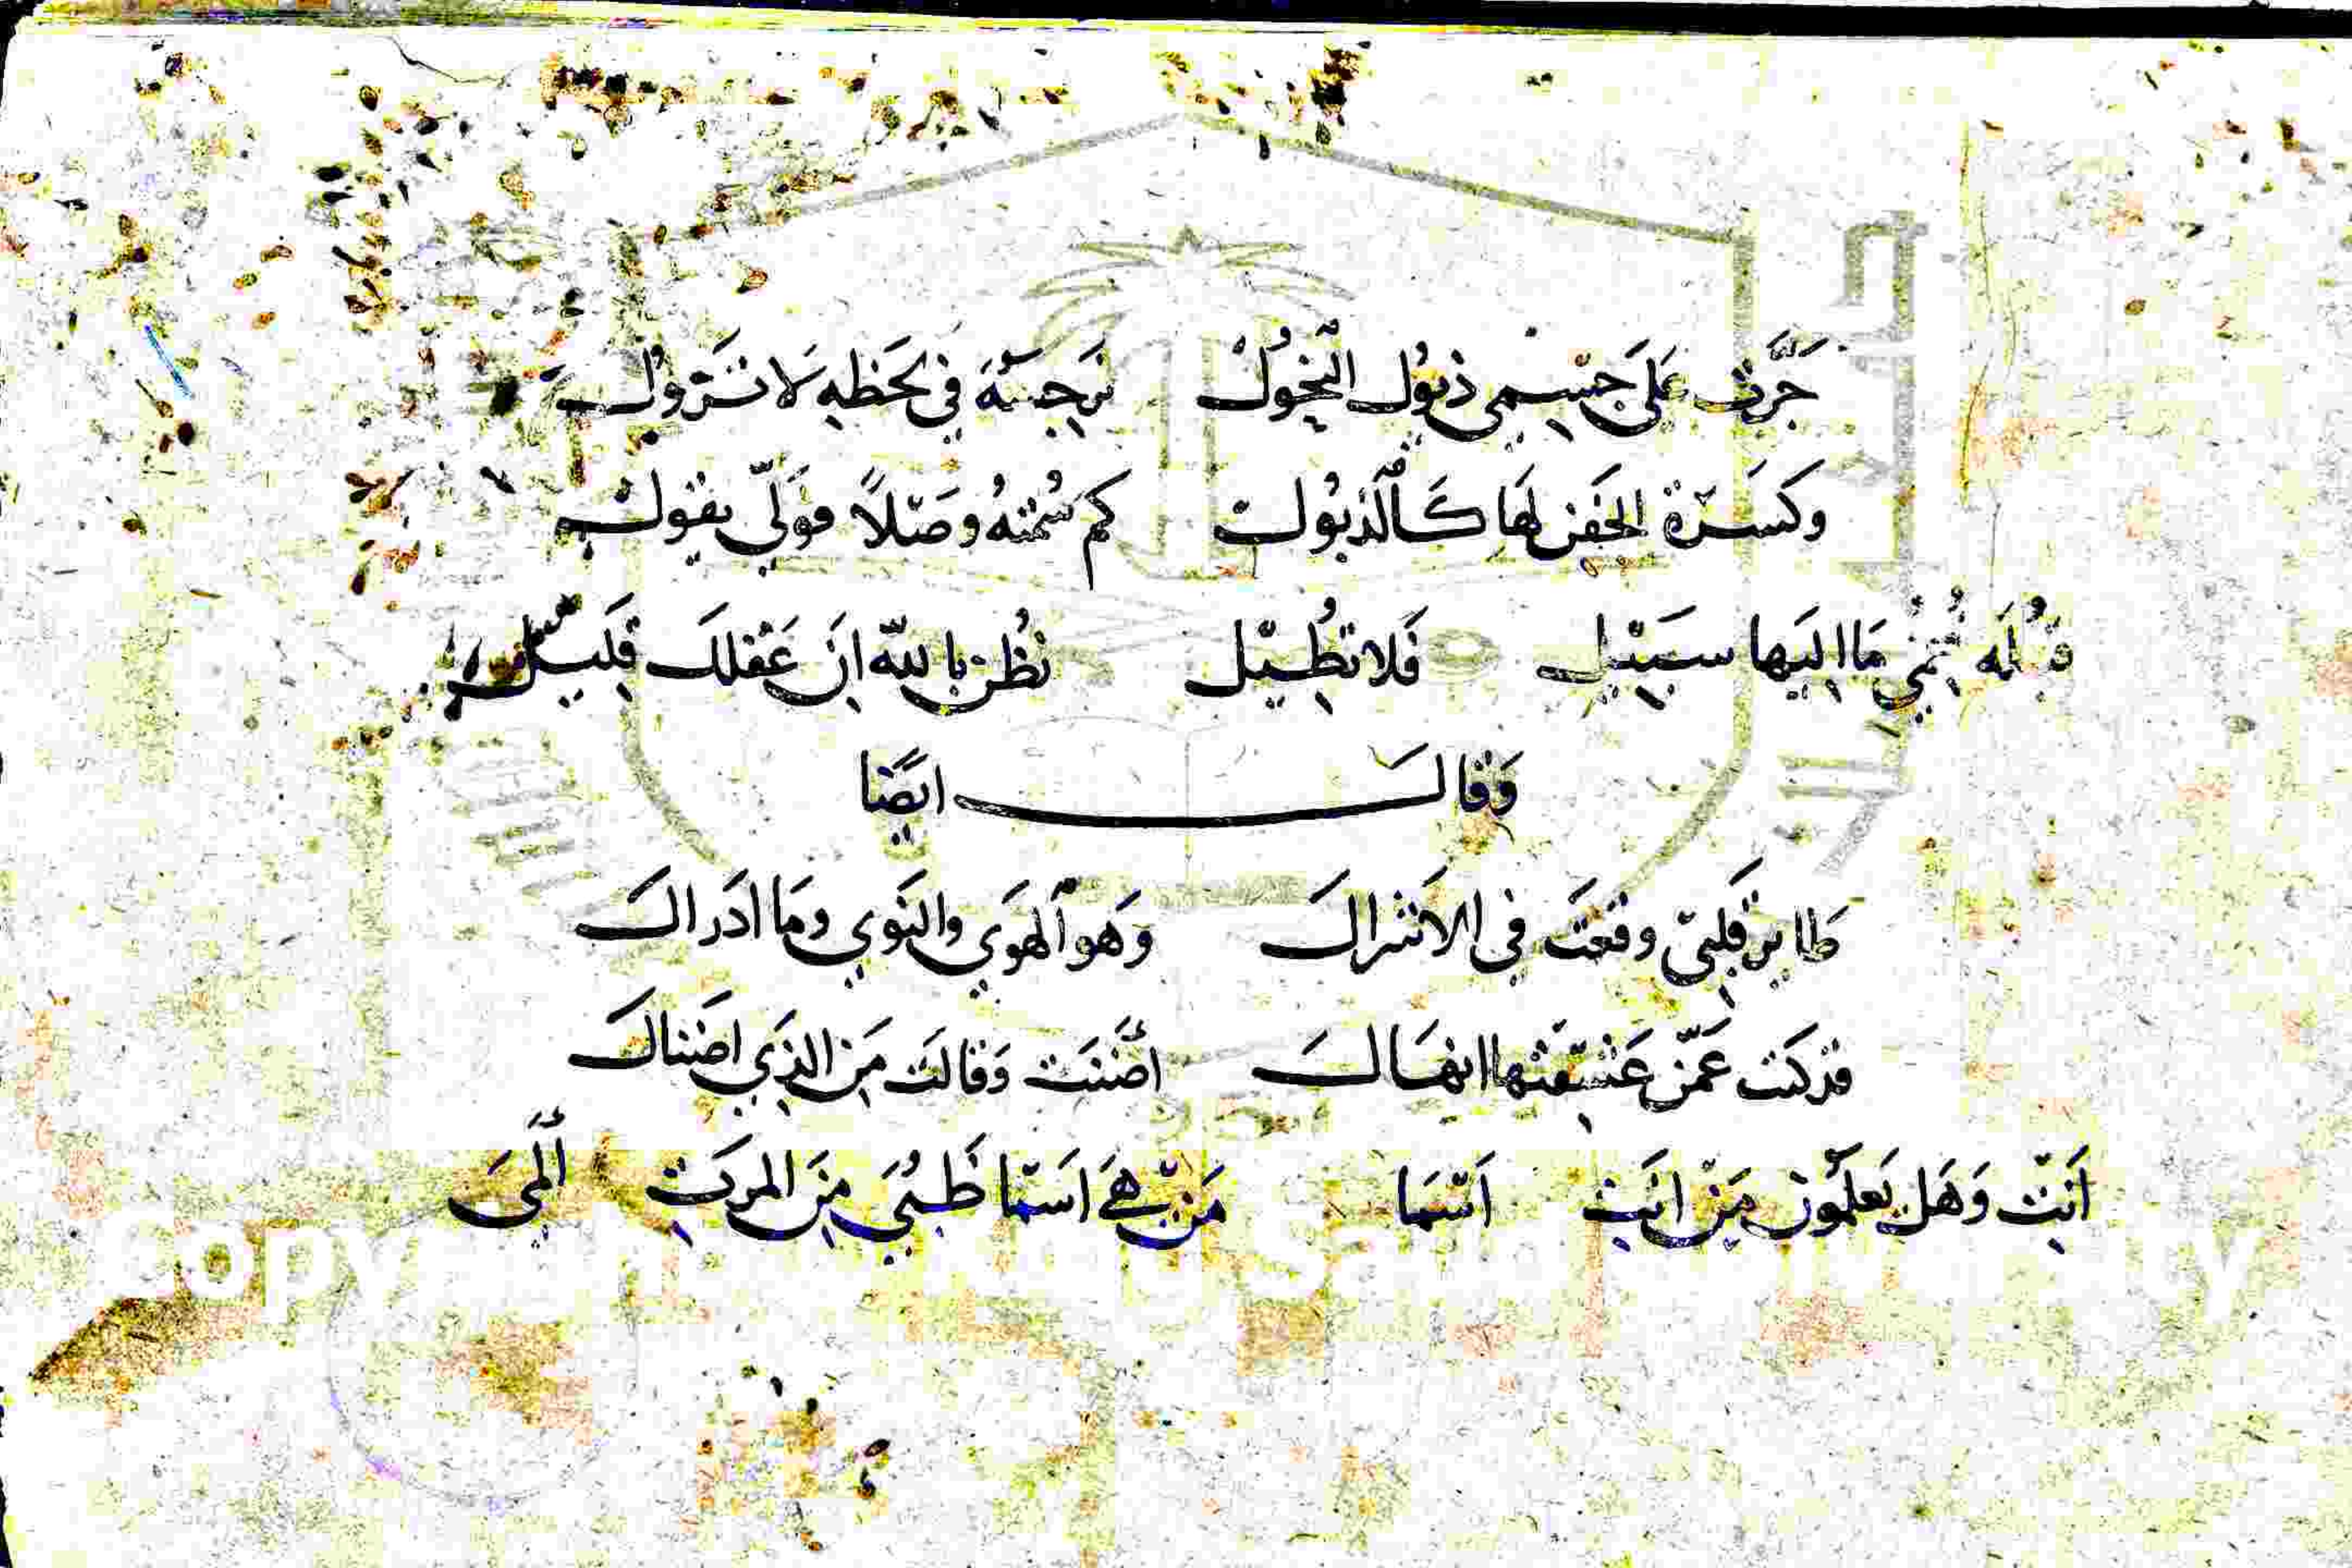 جَرَّت عَلَى جِسْمِي ذيُول النُحُولْ نَرجِسَةٌ في لَحَظِهِ لَا تَزُولْ
وكَسَرَة الجَفن لَهَا كَالذبُول كم سُمْتهُ وصَلاً فوَلّي يقول
قُبلَه فُمّي مَا اليَها سَبيْل فَلا تطُيل تظُن بالله انَ عَقلك قَليل
وَقال ايضًا
طاير قَلبي وقعَت في الاشراك وَهو الهوَي والنَوي ومَا ادَراك
قد كَنت عَمّن عَشقتها انهَاك اضنَت وَقالَت مَن الذَي اضَناك
اَنتْ وَهَل يَعلمَون مَن انَتِ اَسَما مَنْ هَيَ اَسَما ظَبيُ مِنَ المركَبِ الَميَ
Copy y